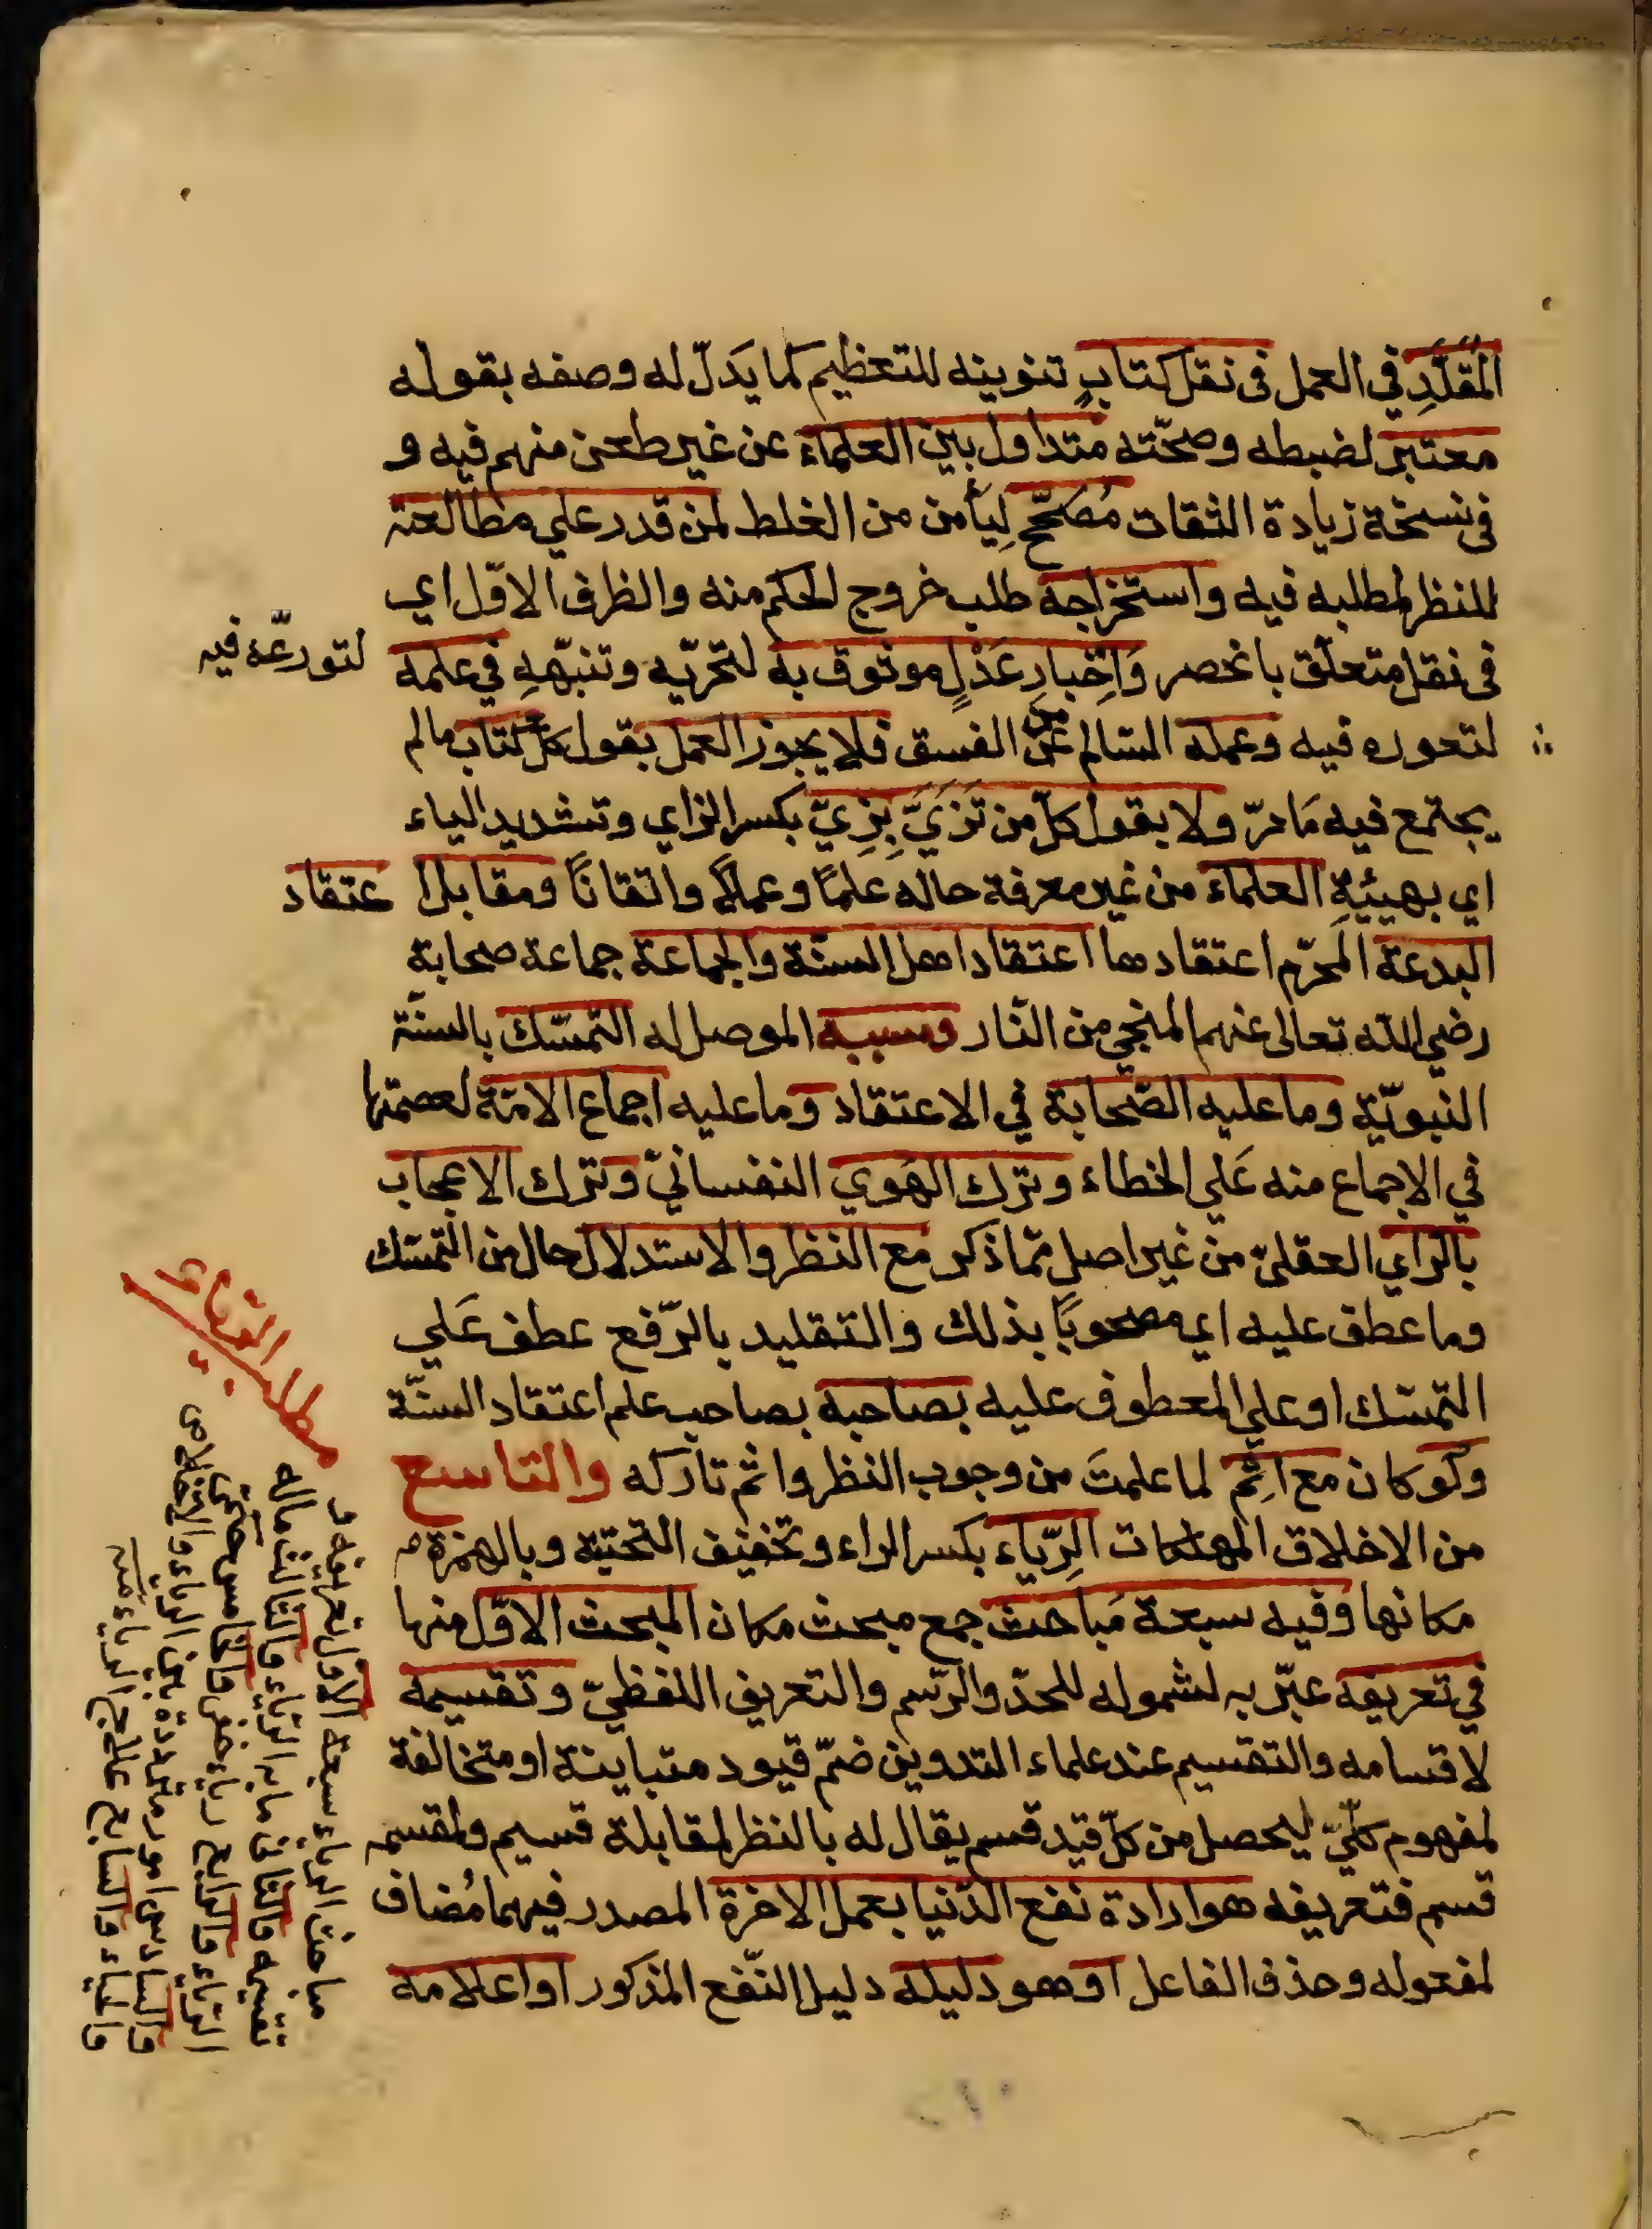 المُقَلَّدِ في العمل في نقل كتابٍ تنوينه للتعظيم كما يَدلّ له وصفه بقوله
معتبر لضبطه وصحّته متداول بين العلماء عن غير طعن منهم فيه و
في نسخة زيادة الثقات مُصَحَّحٍ لِيأمن من الغلط لمن قدر علي مطالعته
للنظر لمطلبه فيه واستخراجه طلب خروج الحكم منه والظرف الاوّل اي
في نقل متعلّق بانحصر وَاِخبارِ عَدْلٍ موثوق به لتحرّيه وتنبّههِ في علمه
لتورعّه فيه
لتعوره فيه وعمله السّالم عن من الفسق فلا يجوز العمل بقول كلّ كتاب مالم
يجتمع فيه مَا مرّ ولا بقول كلّ من تَزَيَّ بِزِيّ بكسر الزاي وتشديد الياء
اي بهيئيةِ العلماء من غير معرفة حاله علمًا وعملًا واتقانًا ومقابل ا عتقاد
البدعة المحرّم اعتقادها اعتقاد اهل السنّة والجماعة جماعة صحابة
رضي الله تعالى عنهم المنجي من النّار وسببه الموصل له التمسّك بالسنّة
النبويّة وما عليه الصّحابة في الاعتقاد وما عليه اجماع الامّة لعصمتها
في الاجماع منه عَلي الخطاء وترك الهَوي النفسانيّ وترك الاعجاب
بالراي العقليّ من غير اصل ممّا ذكر مع النظر والاستدلال حال من التمسّك
وما عطف عليه اي مصحوبًا بذلك والتقليد بالرّفع عطف عَلي
التمسّك او علي المعطوف عليه بصاحبه بصاحب علم اعتقاد السنّة
ولو كان مع اثم لما علمتَ من وجوب النظر واثم تاركه والتاسع
من الاخلاق المهلكات الرِّياء بكسر الراء وتخفيف التحتية وبالهمزة م
مكانها وفيه سبعة مَباحث جمع مبحث مكان المبحث الاوّل منها
في تعريفه عبّر به لشموله للحدّ والرّسم والتعريف اللفظيّ وتقسيمه
لاقسامه والتقسيم عند علماء التدوين ضمّ قيود متباينة او متخالفة
لمفهوم كلّيّ ليحصل من كلّ قيد قسم يقال له بالنظر لمقابلة قسيم ولمقسمه
قسم فتعريفه هو ارادة نفع الدّنيا بعمل الاخرة المصدر فيهما مُضاف
لمفعوله وحذف الفاعل اوهو دليله دليل النّفع المذكور او اعلامه
مباحث الرياء سبعة الاول تعريفه و
تقسيمه والثاني ما به الرياء والثالث ماله
الرياء والرابع رياء خفي والخامس
والسادس امور مترددة بين الرياء والاخلاص
والحياء والسابع علاج الرياء